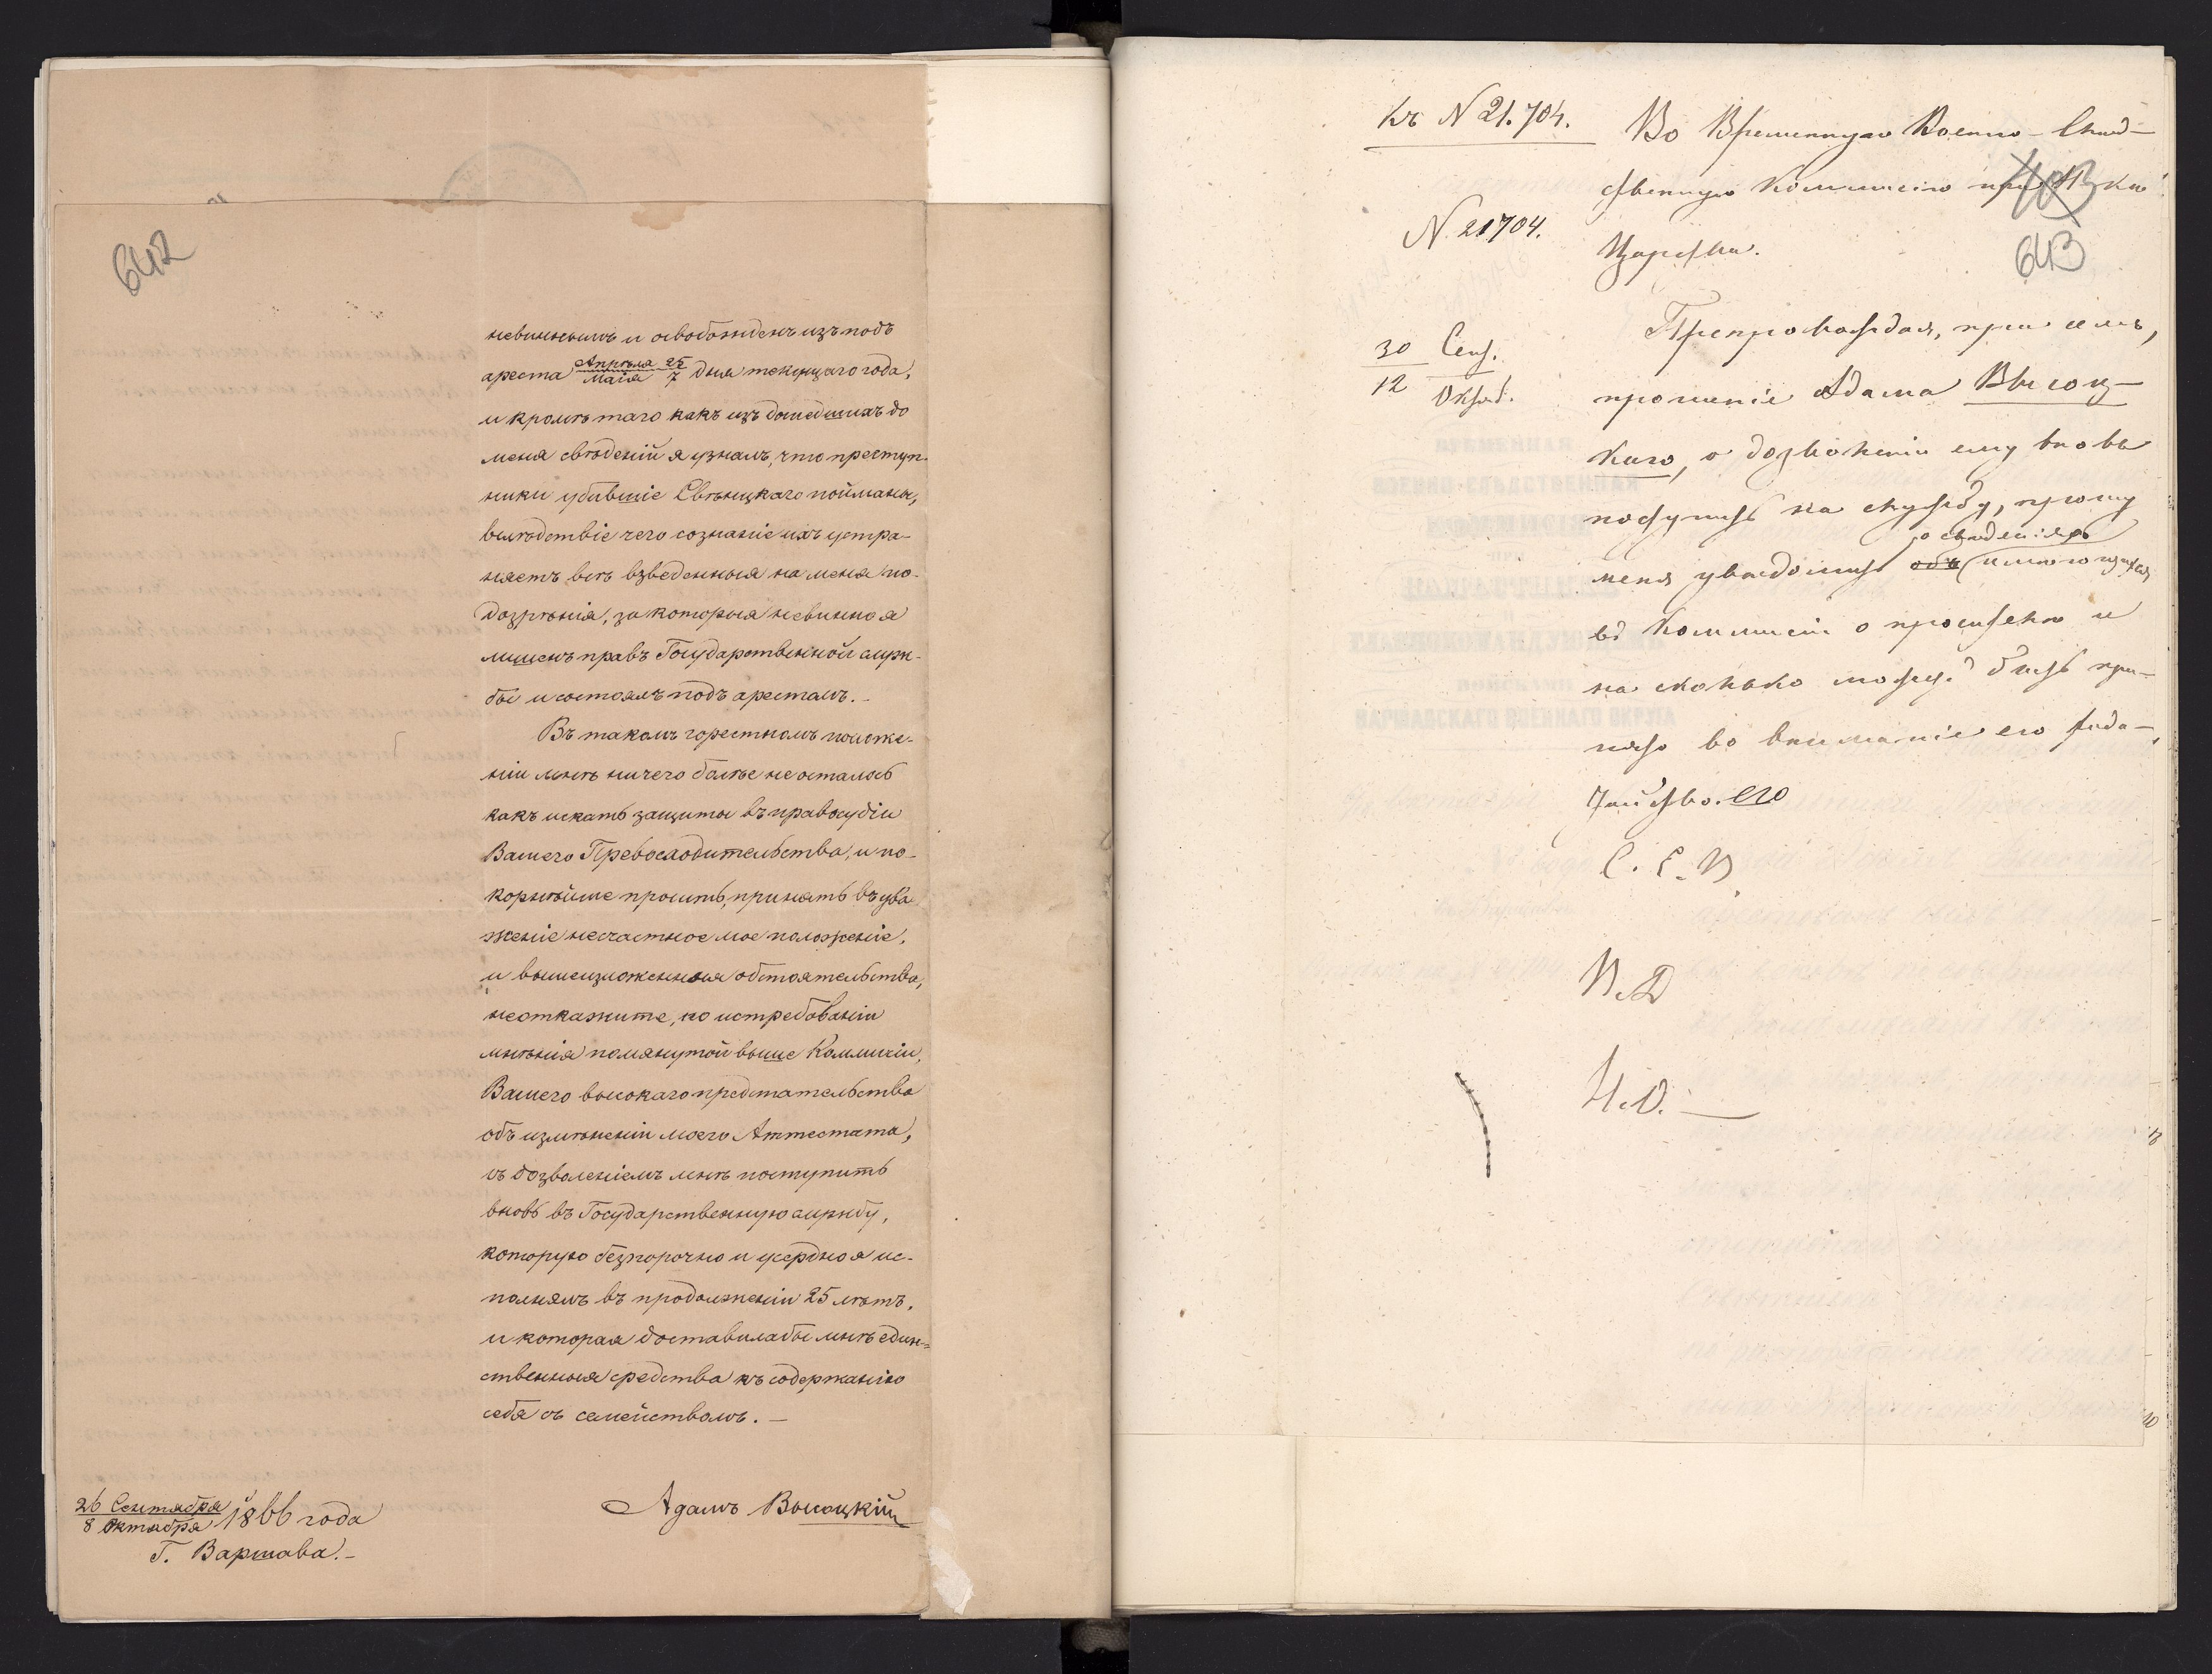 642
невиннымъ и освобожденъ изъ подъ
ареста Апрѣля 25 / Маія 7 дня текущаго года,
и кромѣ того какъ изъ дошедшихъ до
меня свѣдѣній я узналъ, что преступ-
ники убившіе Свѣнцкаго пойманы,
вслѣдствіе чего сознаніе ихъ устра-
няетъ всѣ взведенныя на меня по-
дозрѣнія, за которыя невинно я
лишенъ правъ Государственной служ-
бы и состоялъ подъ арестомъ. -
Въ такомъ горестномъ положе-
ніи мнѣ ничего болѣе не осталось
какъ искать защиты въ правосудіи
Вашего Превосходительства, и по-
корнѣйше просить, принять въ ува-
женіе несчастное мое положеніе,
и вышеизложенныя обстоятельства,
неоткажите, по истребованіи
мнѣнія помянутой выше Коммисіи,
Вашего высокаго предстательства
объ измѣненіи моего Аттестата,
съ дозволеніемъ мнѣ поступить
вновь въ Государственную службу,
которую безпорочно и усердно я ис-
полнялъ въ продолженіи 25 лѣтъ,
и которая доставила бы мнѣ един-
ственныя средства къ содержанію
себя съ семействомъ. -
Адамъ Высоцкій
26 Сентября / 8 Октября 1866 года
Г. Варшава. -
Къ N 21.704.
N. 21704.
30 Сент.
12 Октяб.
Во Временную Военно-Слѣд-
ственную Коммисію при
403
643
Царства.
Препровождая, при семъ,
прошеніе Адама Высоц-
каго, о дозволеніи ему вновь
поступить на службу, прошу
о свѣденіяхъ
меня увѣдомить объ имѣющихся
въ Коммисіи о просителѣ и
на сколько можетъ быть при-
нято во вниманіе его хода-
тайство. его
С. Е. В.
П. Д
Н. О. —